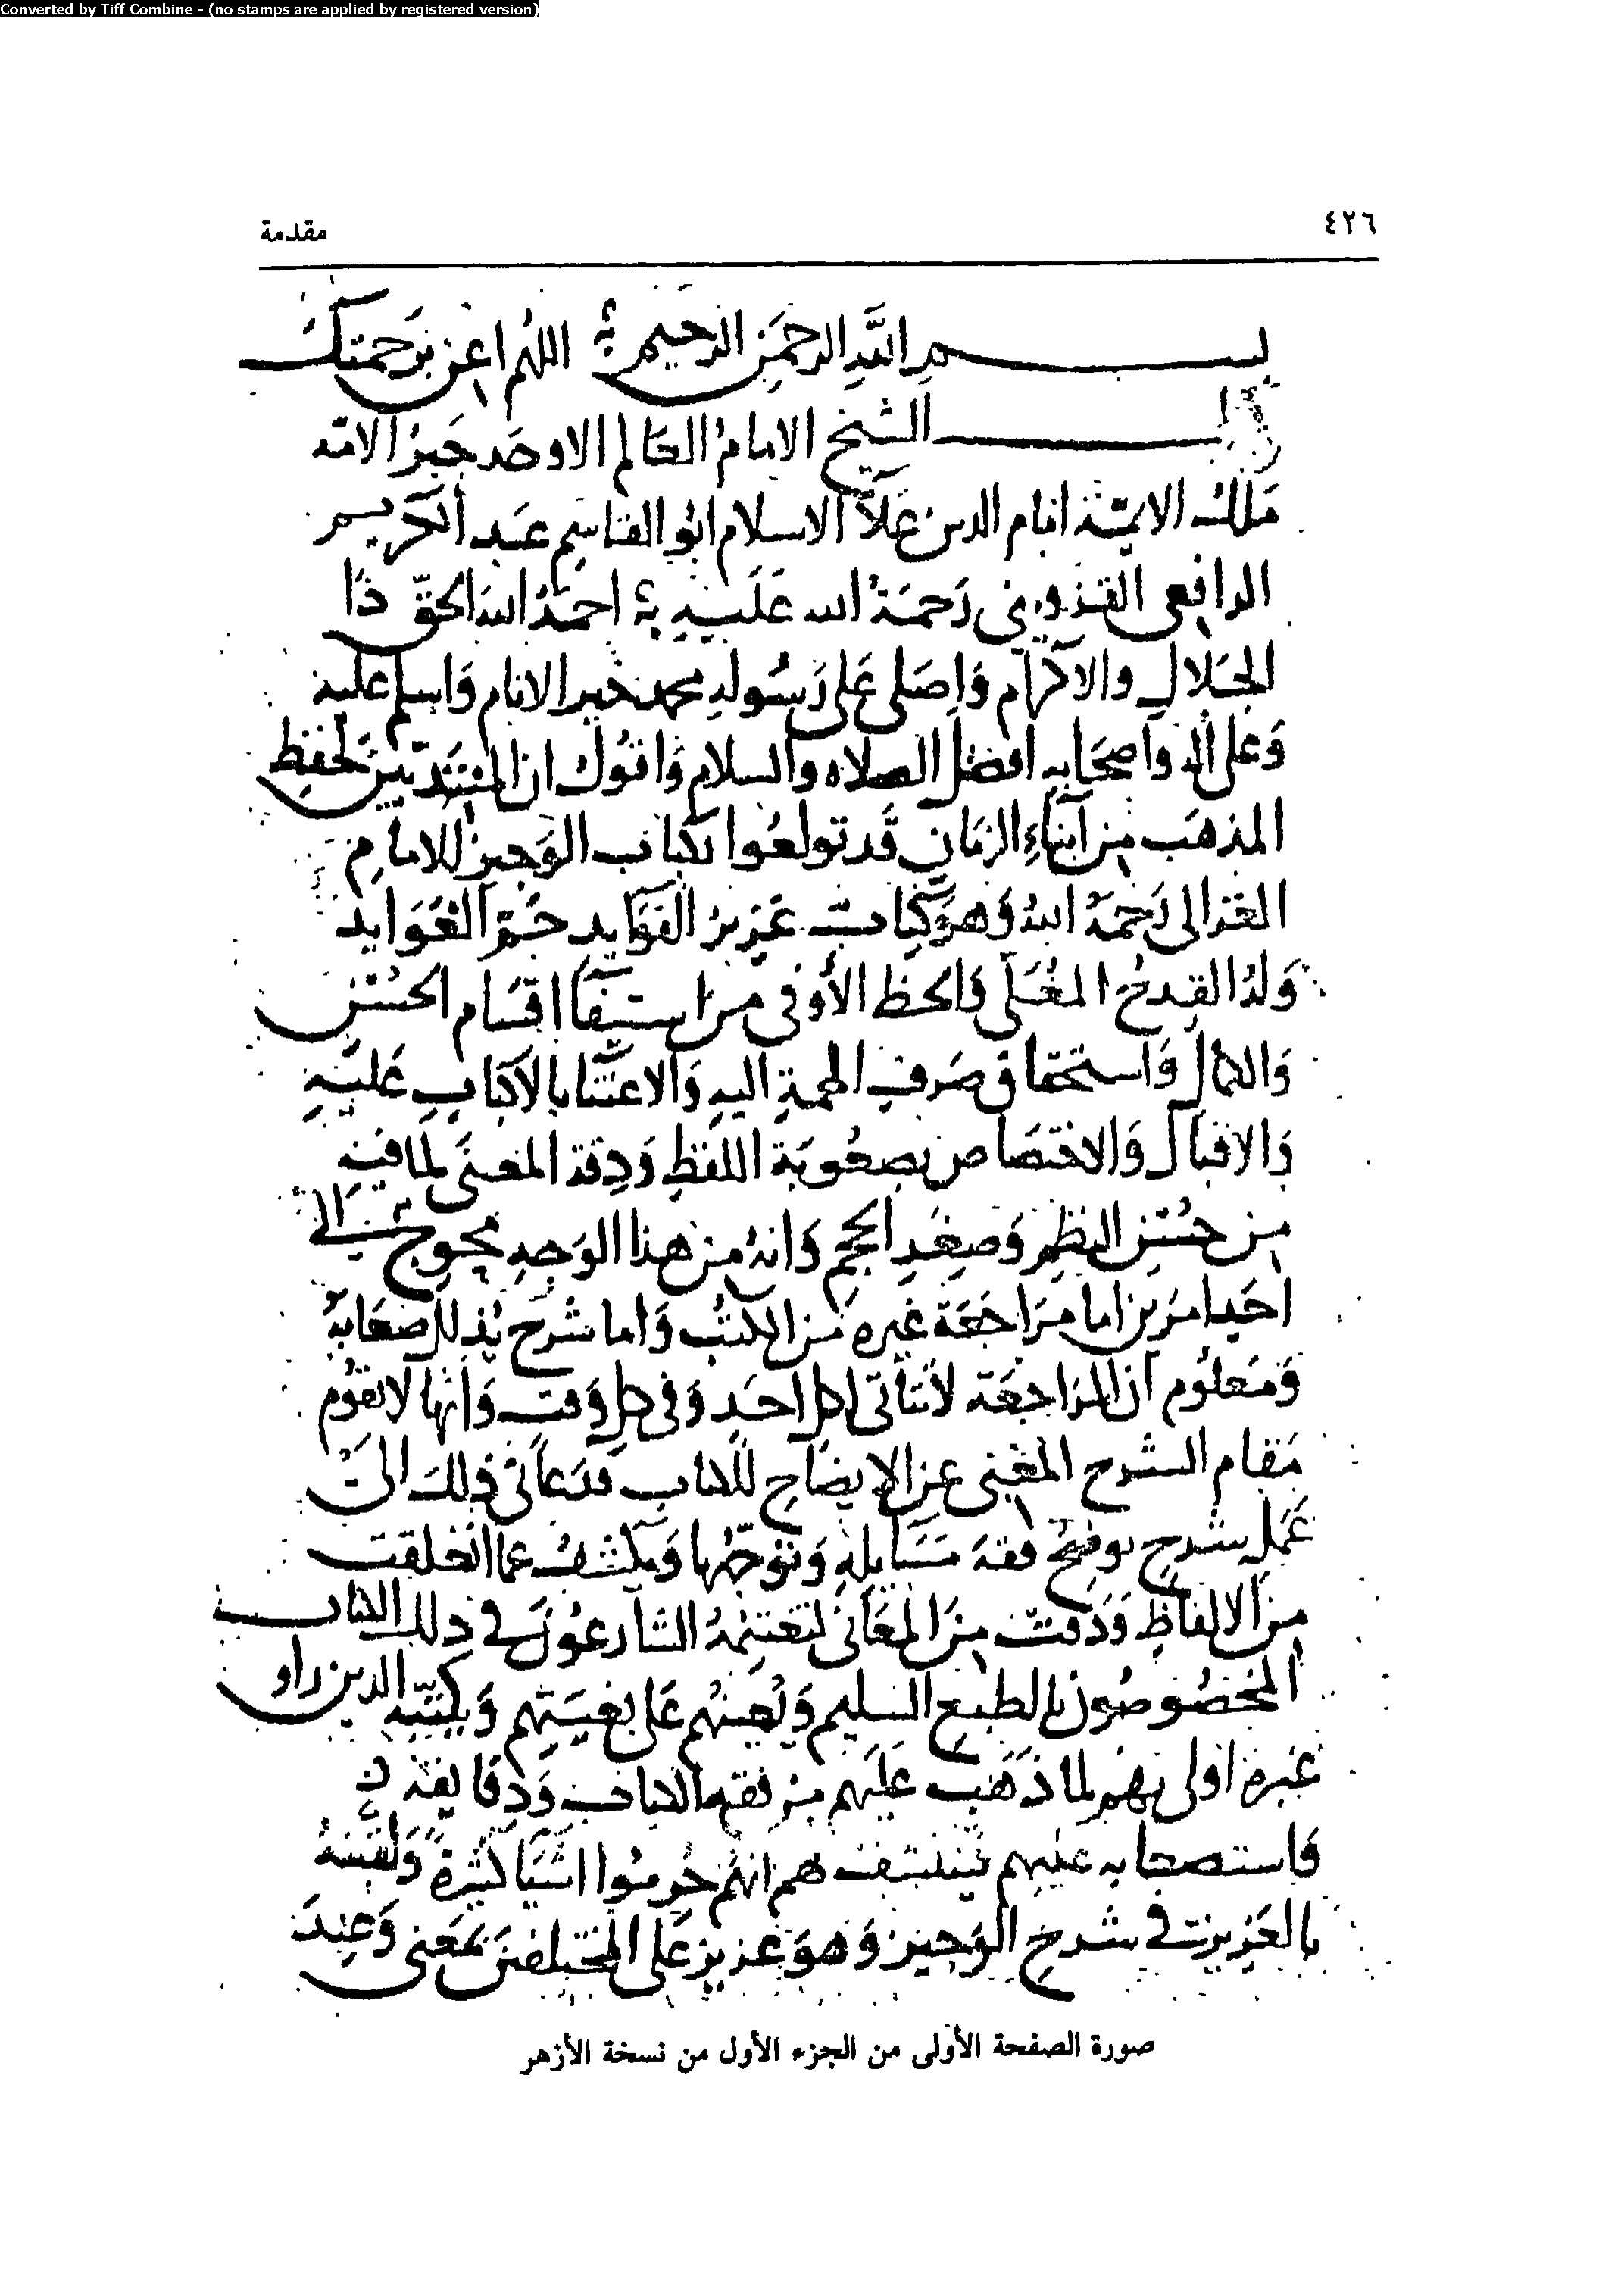 Converted by Tiff Combine - (no stamps are applied by registered version)
٤٢٦
مقدمة
بسم الله الرحمن الرحيم اللهم اعن برحمتك
الشيخ الامام العالم الاوحد حبر الامة
ملك الايمة امام الدين علا الاسلام ابو القاسم عبد الكريم
الرافعي القزويني رحمة الله عليه احمد الله الحق ذا
الجلال والاكرام واصلى على رسوله محمد خير الانام واسلم عليه
وعلى اله واصحابه افضل الصلاه والسلام واقول ان المبتدئين لحفظ
المذهب من ابناء الزمان قد تولعوا بكتاب الوجيز للامام
الغزالى رحمة الله وهو كتاب غزير الفوايد جم العوايد
وله القدح المعلى والحظ الأوفى من استيفا اقسام الحسن
والكمال واستحقاق صرف الهمة اليه والاعتنا بالاكباب عليه
والاقبال والاختصاص بصعوبة اللفظ ودقة المعنى لما فيه
من حسن النظم وصغر الحجم وانه من هذا الوجه محوج الى
احد امرين اما مراجعة غيره من الكتب واما شرح يذلل صعابه
ومعلوم ان المراجعة لا تتأتى لكل احد وفى كل وقت وانها لا تقوم
مقام الشرح المغنى عن الايضاح للكتاب فدعانى ذلك الى
عمل شرح يوضح فقه مسايله ويوجهها ويكشف عما انغلقت
من الالفاظ ودقت من المعانى ليغتنمه الشارعون فى ذلك الكتاب
المخصوصون بالطبع السليم ويعينهم على بغيتهم ويتنبه الذين راو
غيره اولى بهم لما ذهب عليهم من فقه الكتاب ودقايقه
واستصعابه عليهم فينكشف لهم انهم حرموا اشيا كثيرة ولقبته
بالعزيز فى شرح الوجيز وهو عزيز على المختلفين بمعنى وعند
صورة الصفحة الأولى من الجزء الأول من نسخة الأزهر